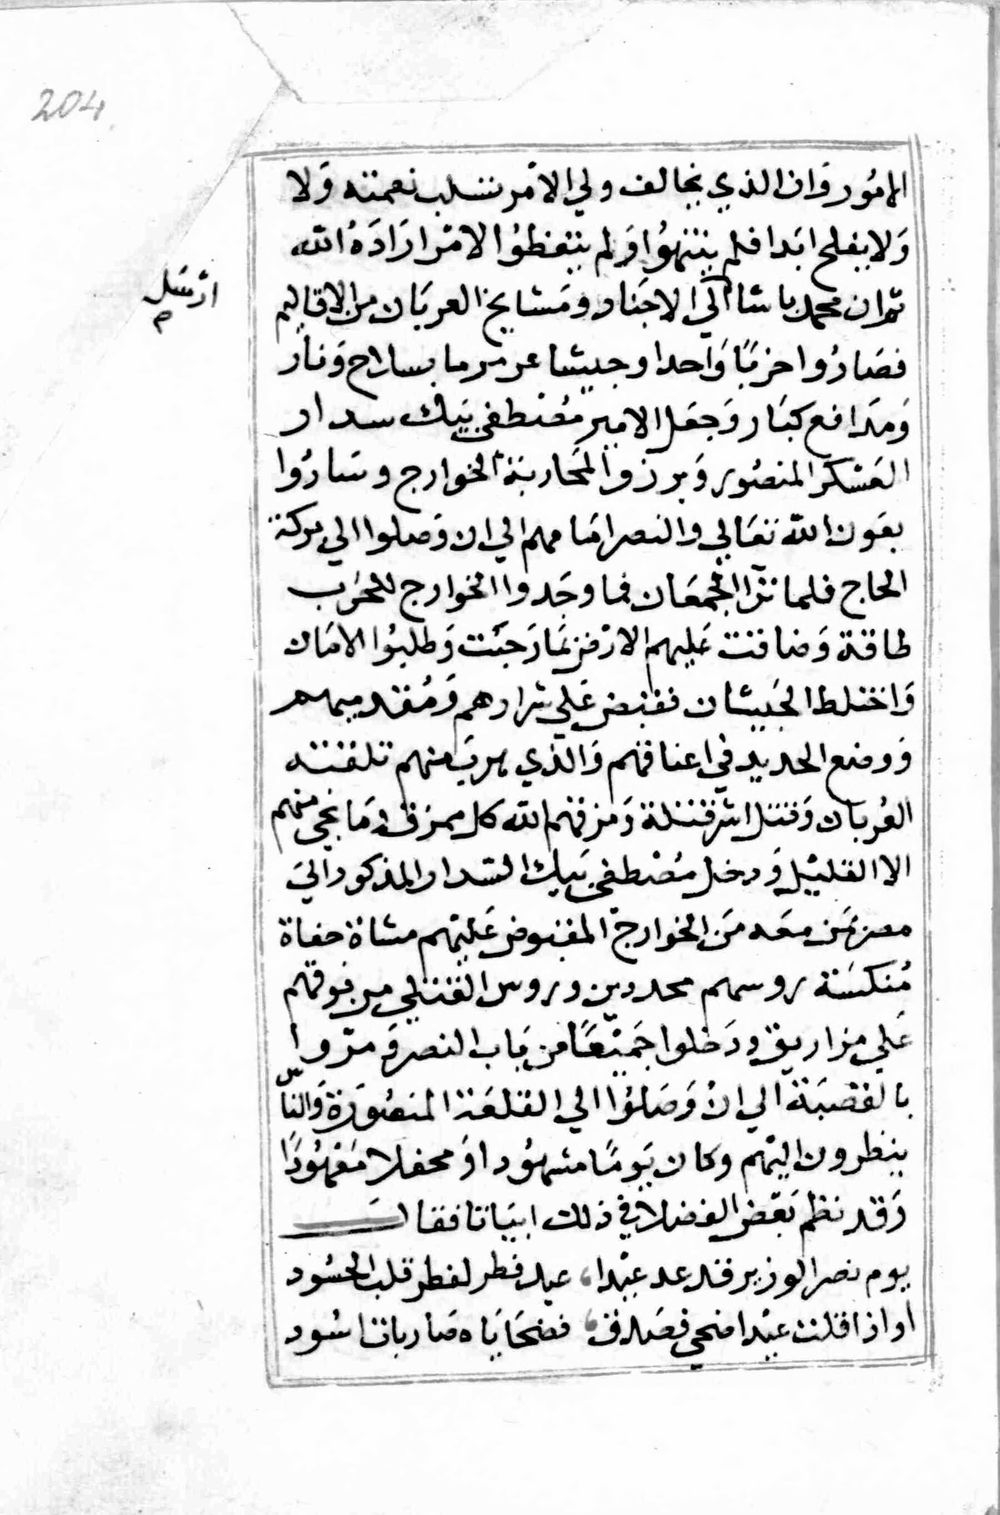 204
الامور وان الذي يخالف ولي الامر تسلب نعمته ولا
ولا يفلح ابدا فلم ينتهوا ولم يتعظوا لامر اراده الله
ارسل
ثم ان محمد باشا الي الاجناد ومشايخ العربان من الاقاليم
فصاروا حزبا واحدا وجيشا عرمرما بسلاح ونار
ومدافع كبار وجعل الامير مصطفى بيك سدار
العسكر المنصور وبرزوا لمحاربة الخوارج وساروا
بعون الله تعالي والنصر امامهم الي ان وصلوا الي بركة
الحاج فلما تترا الجمعان فما وجدوا الخوارج للحرب
طاقة وضاقت عليهم الارض بما رحبت وطلبوا الامان
واختلط الجيشان فقبض علي شرارهم ومقدميهم
ووضع الحديد في اعناقهم والذي هرب منهم تلقته
العربان وقتل اشر قتلة ومزقهم الله كل ممزق وما نجي منهم
الا القليل ودخل مصطفى بيك السدار المذكور الي
مصر بمن معه من الخوارج المقبوض عليهم مشاة حفاة
منكسة روسهم محددين وروس القتلي من فوقهم
علي مزاريق ودخلوا جميعا من باب النصر ومروا
بالقصبة الي ان وصلوا الي القلعة المنصورة والناس
ينظرون اليهم وكان يوما مشهودا ومحفلا معهودا
وقد نظم بعض الفضلا في ذلك ابياتا فقال
يوم نصر الوزير قد عد عيدا، عيد فطر لفطر قلب الحسود
او اذا قلت عيد اضحي فصدق، فضحاياه صاربات اسود